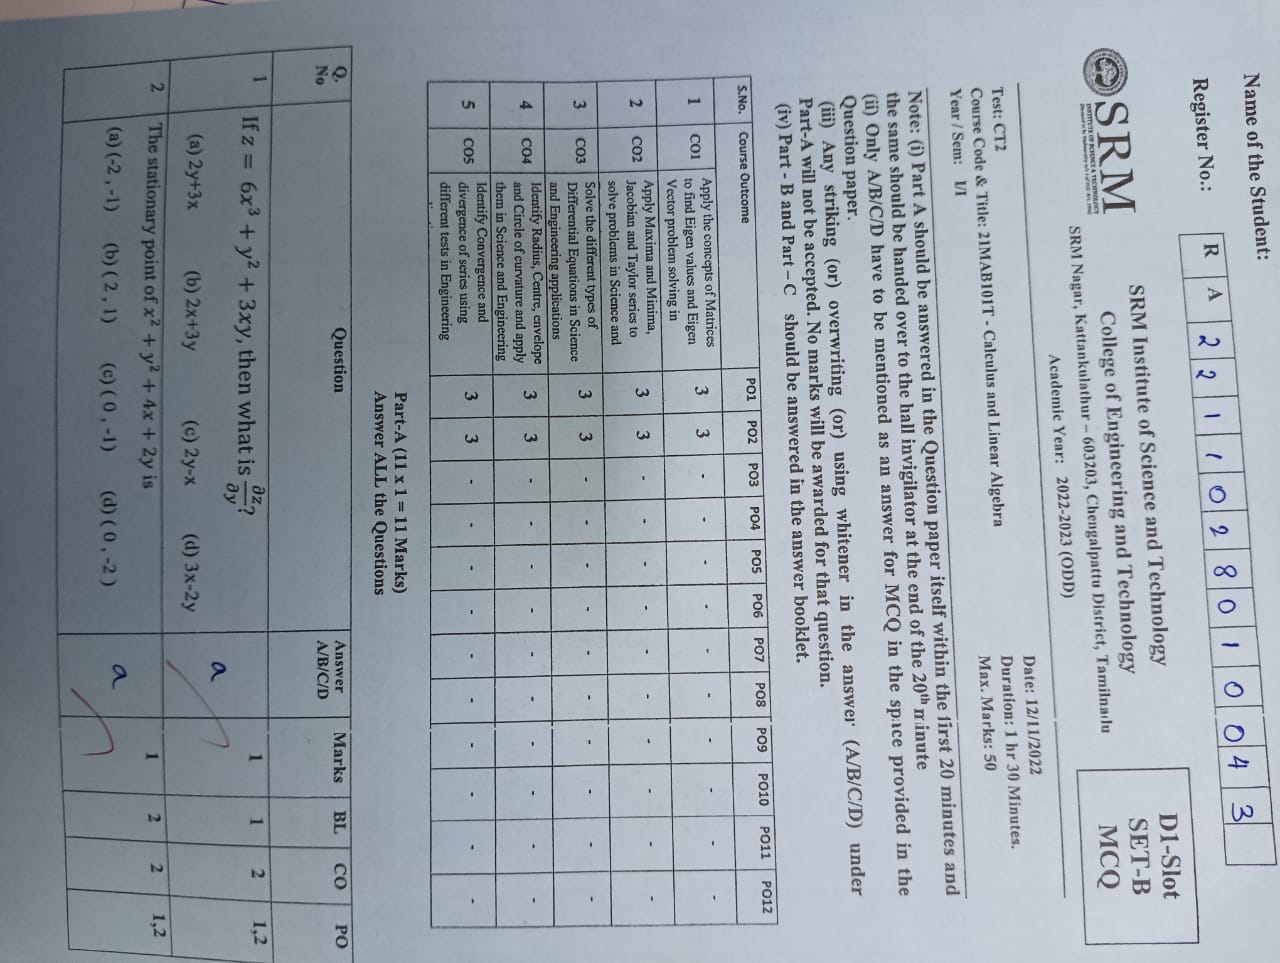 Name of the Student:
Register No.: R A 2 2 1 1 0 2 8 0 1 0 0 4 3
SRM
INSTITUTE OF SCIENCE & TECHNOLOGY
SRM Institute of Science and Technology
College of Engineering and Technology
SRM Nagar, Kattankulathur – 603203, Chengalpattu District, Tamilnadu
Academic Year: 2022-2023 (ODD)
D1-Slot
SET-B
MCQ
Test: CT2 Date: 12/11/2022
Course Code & Title: 21MAB101T - Calculus and Linear Algebra Duration: 1 hr 30 Minutes.
Year / Sem: I/I Max. Marks: 50
Note: (i) Part A should be answered in the Question paper itself within the first 20 minutes and
the same should be handed over to the hall invigilator at the end of the 20th minute
(ii) Only A/B/C/D have to be mentioned as an answer for MCQ in the space provided in the
Question paper.
(iii) Any striking (or) overwriting (or) using whitener in the answer (A/B/C/D) under
Part-A will not be accepted. No marks will be awarded for that question.
(iv) Part - B and Part – C should be answered in the answer booklet.
S.No. Course Outcome PO1 PO2 PO3 PO4 PO5 PO6 PO7 PO8 PO9 PO10 PO11 PO12
1 CO1 Apply the concepts of Matrices
to find Eigen values and Eigen
Vector problem solving in
3 3 - - - - - - - - - -
2 CO2 Apply Maxima and Minima,
Jacobian and Taylor series to
solve problems in Science and
3 3 - - - - - - - - - -
3 CO3 Solve the different types of
Differential Equations in Science
and Engineering applications
3 3 - - - - - - - - - -
4 CO4 Identify Radius, Centre, envelope
and Circle of curvature and apply
them in Science and Engineering
3 3 - - - - - - - - - -
5 CO5 Identify Convergence and
divergence of series using
different tests in Engineering
3 3 - - - - - - - - - -
Part-A (11 x 1 = 11 Marks)
Answer ALL the Questions
Q. No Question Answer A/B/C/D Marks BL CO PO
1 If z = 6x³ + y² + 3xy, then what is ∂z/∂y? 1 1 2 1,2
(a) 2y+3x (b) 2x+3y (c) 2y-x (d) 3x-2y a
2 The stationary point of x² + y² + 4x + 2y is 1 2 2 1,2
(a) (-2 ,-1) (b) ( 2 , 1) (c) ( 0 , -1) (d) ( 0 , -2 ) a